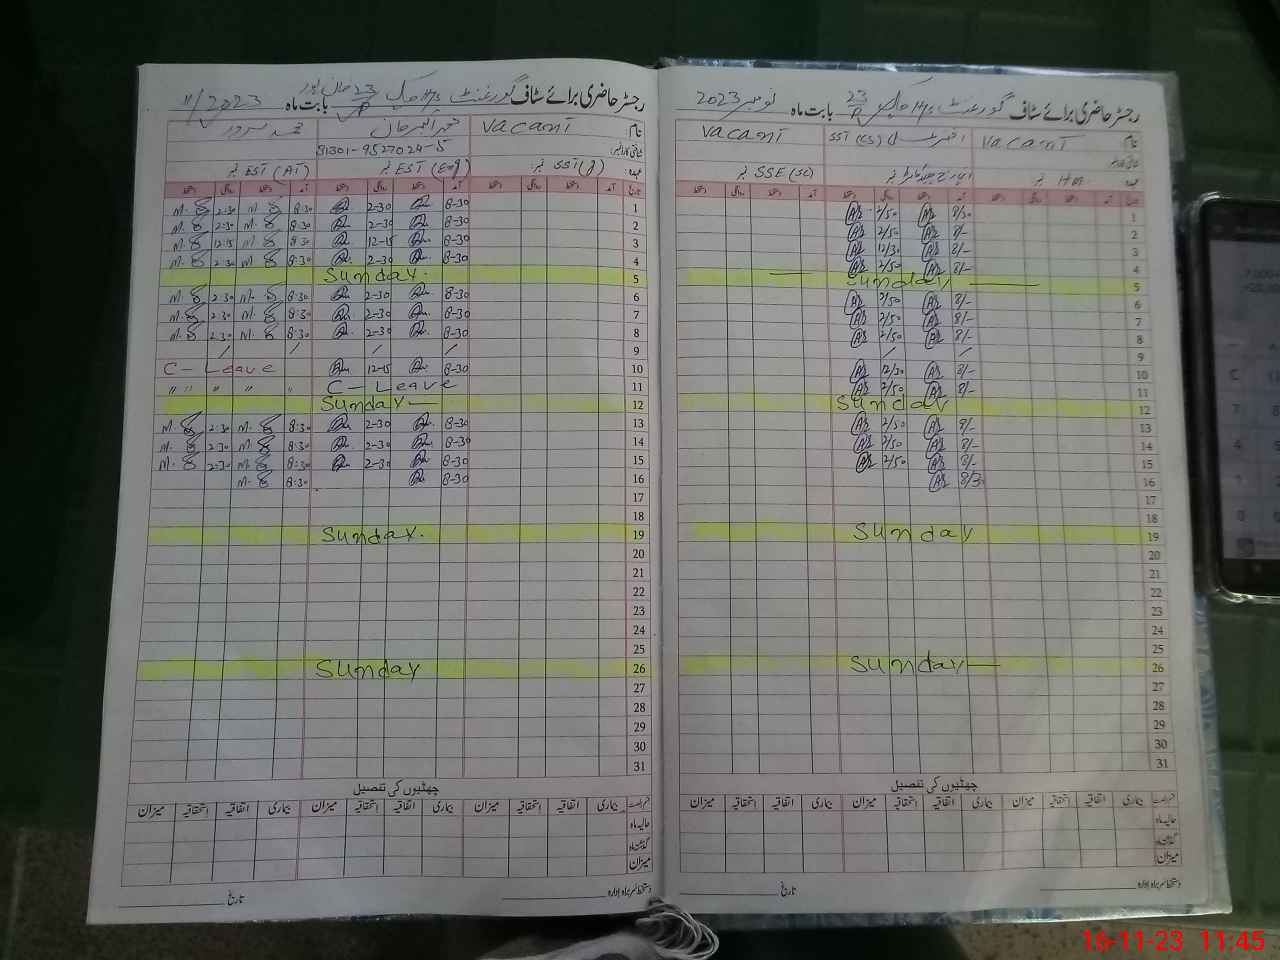 رجسٹر حاضری برائے سٹاف گورنمنٹ بابت ماہ نومبر 2023
نام Vacant Vacant
SST (CS)
عہدہ HM نمبر انچارج ہیڈماسٹر نمبر SSE (SC) نمبر
تاریخ آمد دستخط روانگی دستخط آمد دستخط روانگی دستخط آمد دستخط روانگی دستخط
1 8/30 2/50
2 8/- 2/50
3 8/- 12/30
4 8/- 2/50
5 Sunday
6 8/- 2/50
7 8/- 2/50
8 8/- 2/50
9
10 8/- 12/30
11 8/- 2/50
12 Sunday
13 8/- 2/50
14 8/- 2/50
15 8/- 2/50
16 8/30
17
18
19 Sunday
20
21
22
23
24
25
26 Sunday
27
28
29
30
31
چھٹیوں کی تفصیل
بیماری اتفاقیہ استحقاقیہ میزان بیماری اتفاقیہ استحقاقیہ میزان بیماری اتفاقیہ استحقاقیہ میزان
حالیہ ماہ
گذشتہ ماہ
میزان
دستخط سربراہ ادارہ تاریخ
رجسٹر حاضری برائے سٹاف گورنمنٹ 23 بابت ماہ 11/2023
نام Vacant محمد سرور
31301-9527024-5
عہدہ SST (G) نمبر EST (Eng) نمبر EST (AT) نمبر
تاریخ آمد دستخط روانگی دستخط آمد دستخط روانگی دستخط آمد دستخط روانگی دستخط
1 8-30 2-30 8:30 2:30
2 8-30 2-30 8:30 2:30
3 8-30 12-15 8:30 12:15
4 8-30 2-30 8:30 2:30
5 Sunday.
6 8-30 2-30 8:30 2:30
7 8-30 2-30 8:30 2:30
8 8-30 2-30 8:30 2:30
9
10 8-30 12-15 C - Leave
11 C - Leave " " " " "
12 Sunday
13 8-30 2-30 8:30 2:30
14 8-30 2-30 8:30 2:30
15 8-30 2-30 8:30 2:30
16 8-30 8:30
17
18
19 Sunday.
20
21
22
23
24
25
26 Sunday
27
28
29
30
31
چھٹیوں کی تفصیل
بیماری اتفاقیہ استحقاقیہ میزان بیماری اتفاقیہ استحقاقیہ میزان بیماری اتفاقیہ استحقاقیہ میزان
حالیہ ماہ
گذشتہ ماہ
میزان
دستخط سربراہ ادارہ تاریخ
16-11-23 11:45